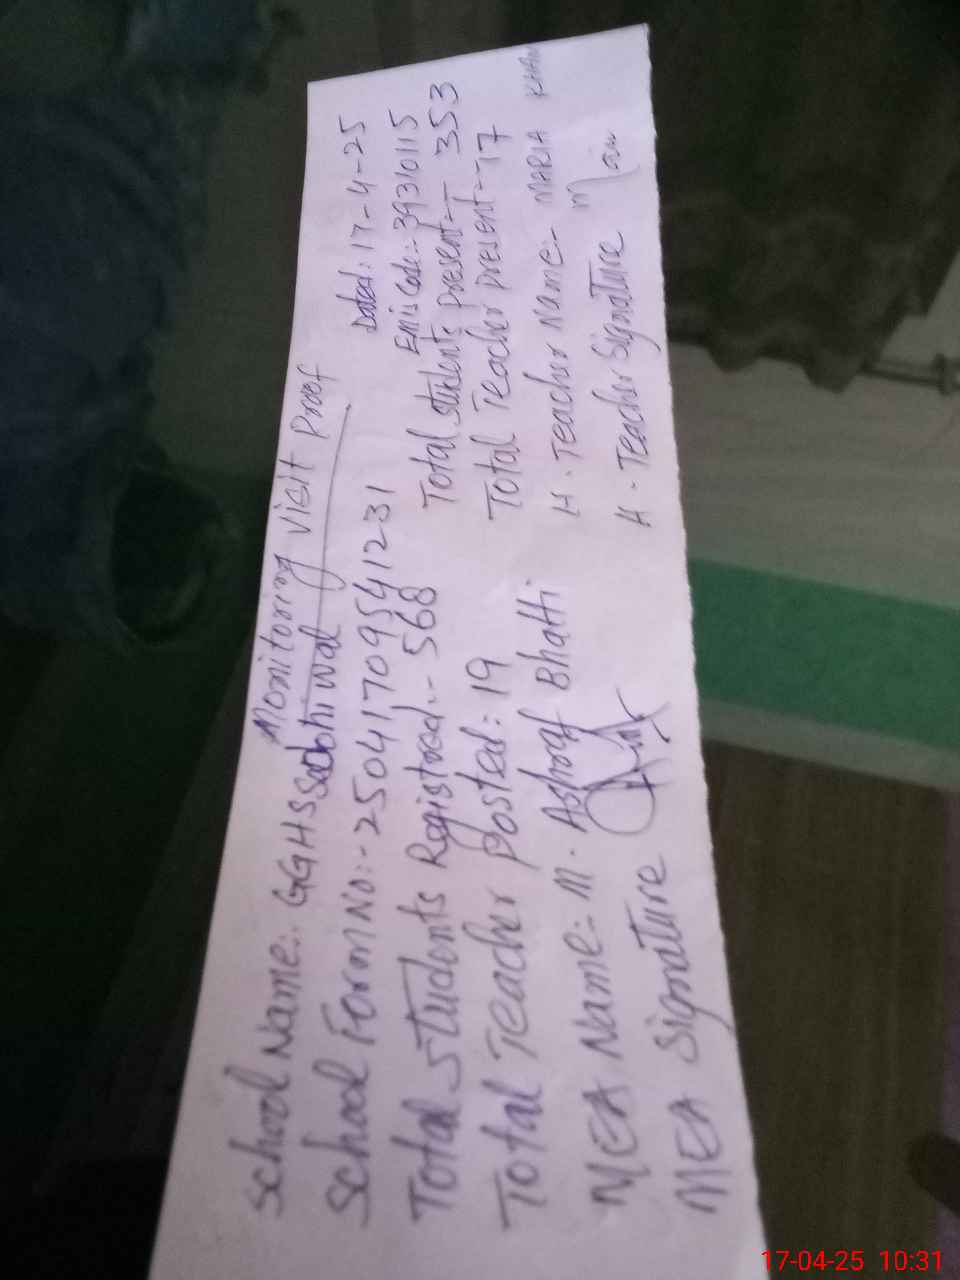 Monitoring Visit Proof
School Name:- GGHS Sabhiwal Dated: 17-4-25
School Form No:- 250417095441231 Emis Code:- 39310115
Total Students Registered:- 568 Total students present- 353
Total Teacher posted: 19 Total Teacher present- 17
MEA Name:- M. Ashraf Bhatti H. Teacher Name:- MARIA KHAN
MEA Signature H. Teacher Signature
17-04-25 10:31